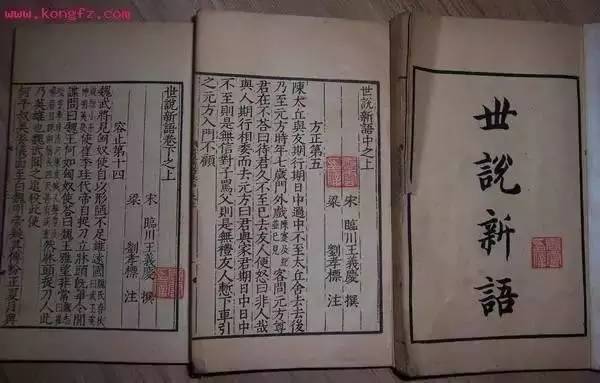 www.kongfz.com
世說新語
世說新語中之上
方正第五
宋 臨川王義慶 撰
梁 劉孝標 注
陳太丘與友期行期日中過中不至太丘舍去去後
乃至元方時年七歲門外戲陳寔及紀並已見客問元方尊
君在不荅曰待君久不至已去友人便怒曰非人哉
與人期行相委而去元方曰君與家君期日中日中
不至則是無信對子罵父則是無禮友人慙下車引
之元方入門不顧
世說新語卷下之上
容止第十四
宋 臨川王義慶 撰
梁 劉孝標 注
魏武將見匈奴使自以形陋不足雄遠國魏氏春秋
使崔季珪代帝自捉刀立牀頭既畢令間
諜問曰魏王何如匈奴使答曰魏王雅望非常
然牀頭捉刀人此
乃英雄也魏武聞之追殺此使
何平叔美姿儀面至白魏明帝疑其傅粉正夏月與